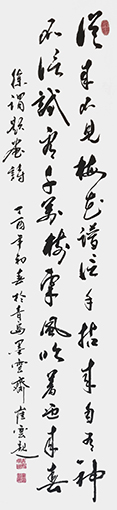 從来不見梅花譜信手拈来自有神
不信試看千萬樹東風吹着便成春
徐渭題畫詩
丁酉年初春於青島墨雲齋崔雲